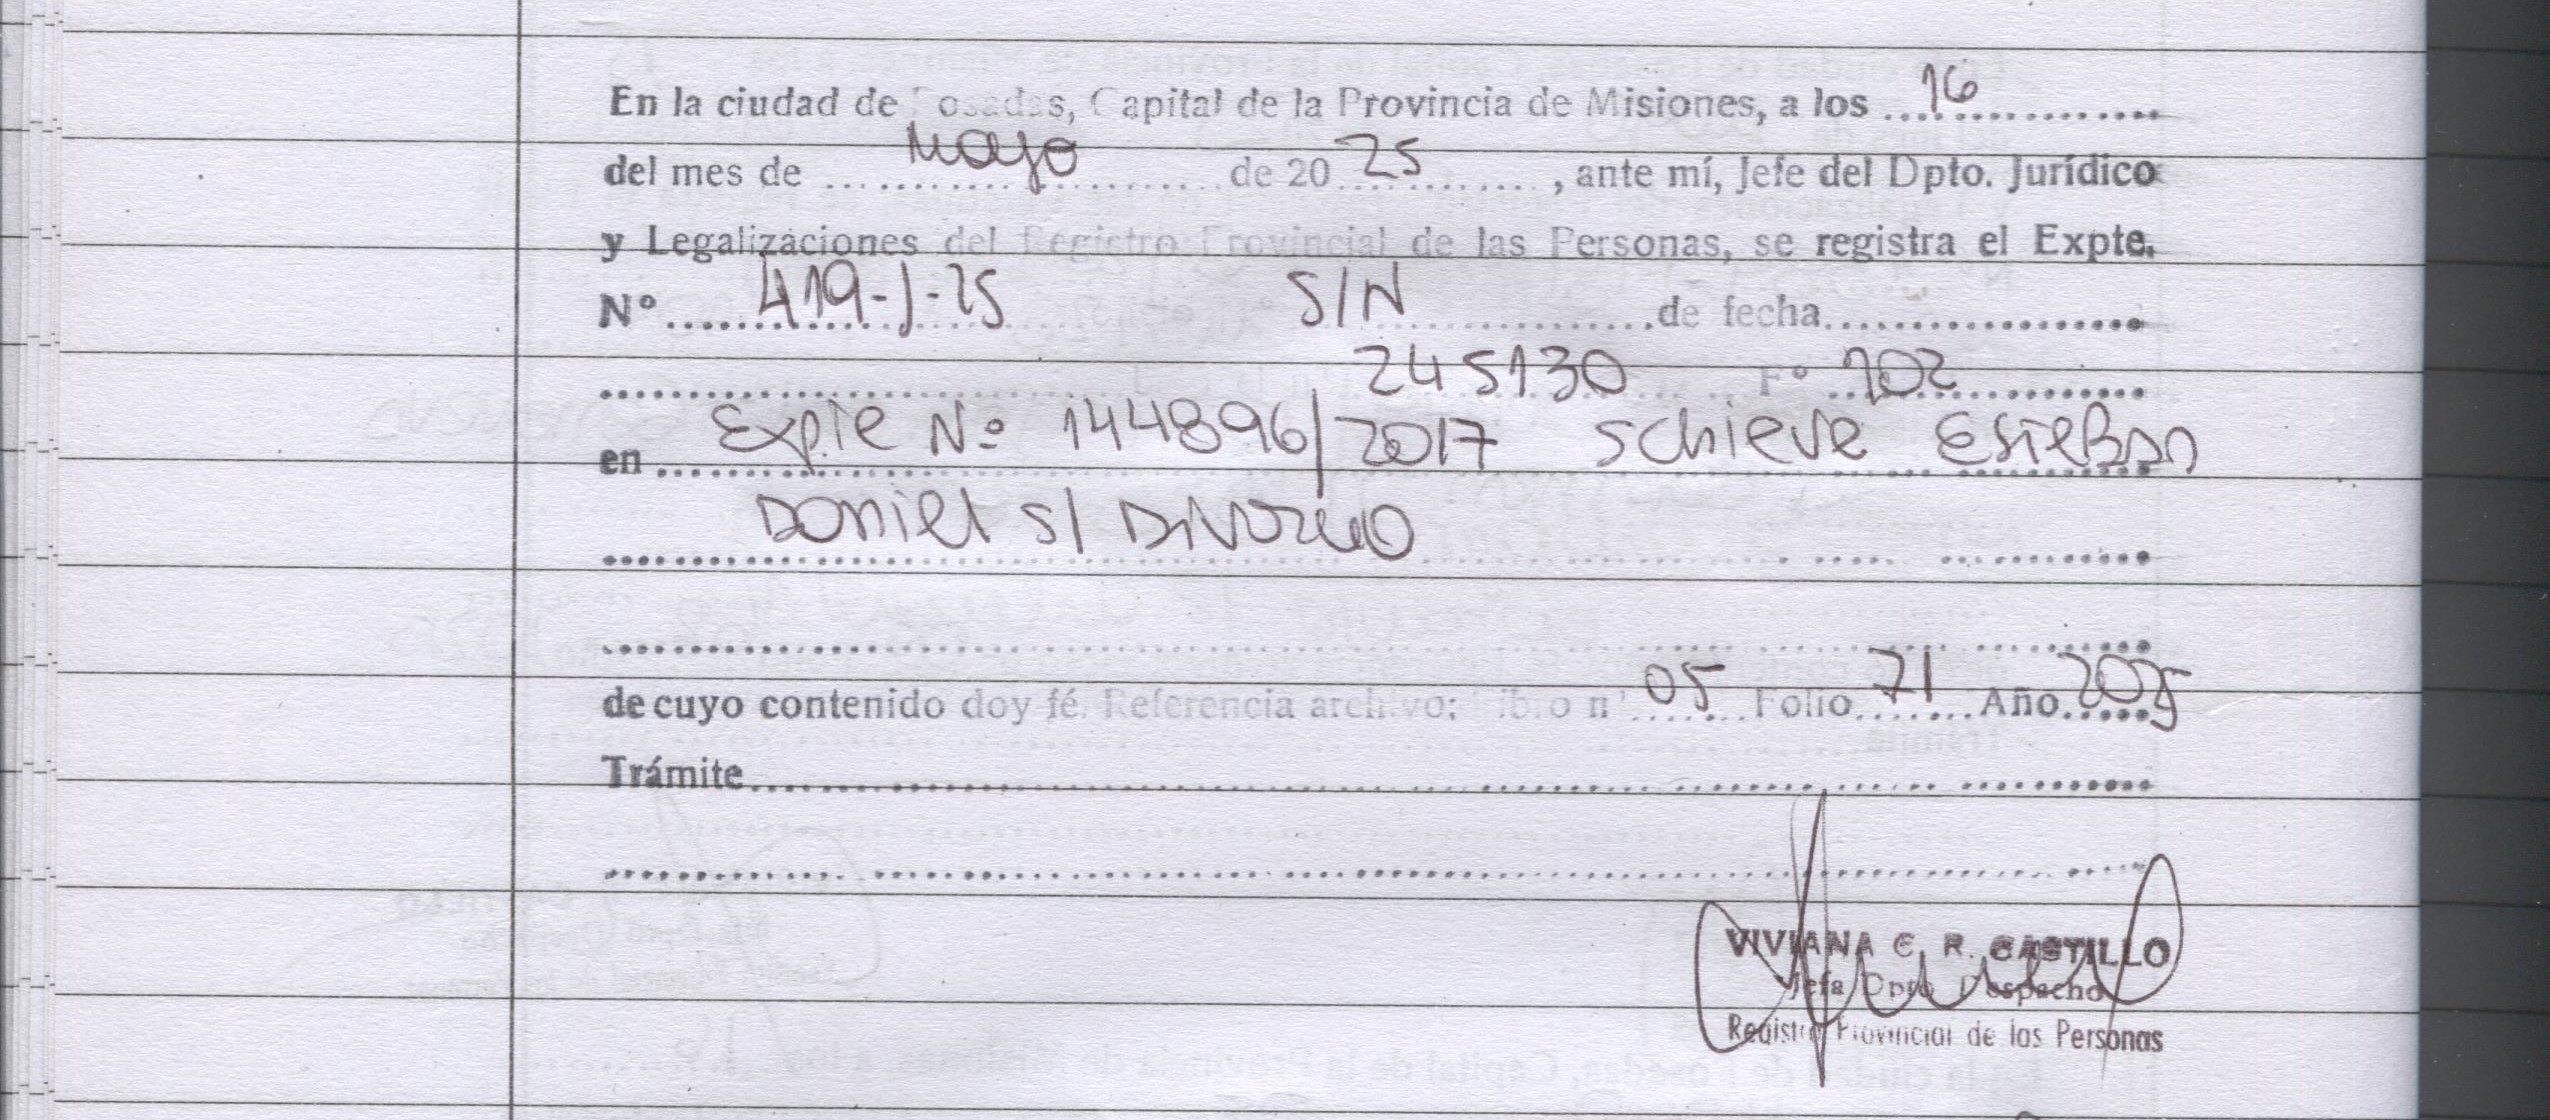 En la ciudad de Posadas, Capital de la Provincia de Misiones, a los ....16................
del mes de ........Mayo............ de 20 25 ............ , ante mí, Jefe del Dpto. Jurídico
y Legalizaciones del Registro Provincial de las Personas, se registra el Expte.
Nº ......419-J-25 S/N ....................de fecha...................
.................................... 245130 Fº ..102................
en ....Expte Nº 144896/2017 Schieve Esteban
Daniel s/ Divorcio
de cuyo contenido doy fé. Referencia archivo; Libro nº 05 Folio 71 Año 2025
Trámite........................................................
VIVIANA C. R. CASTILLO
Jefa Dpto Despacho
Registro Provincial de las Personas